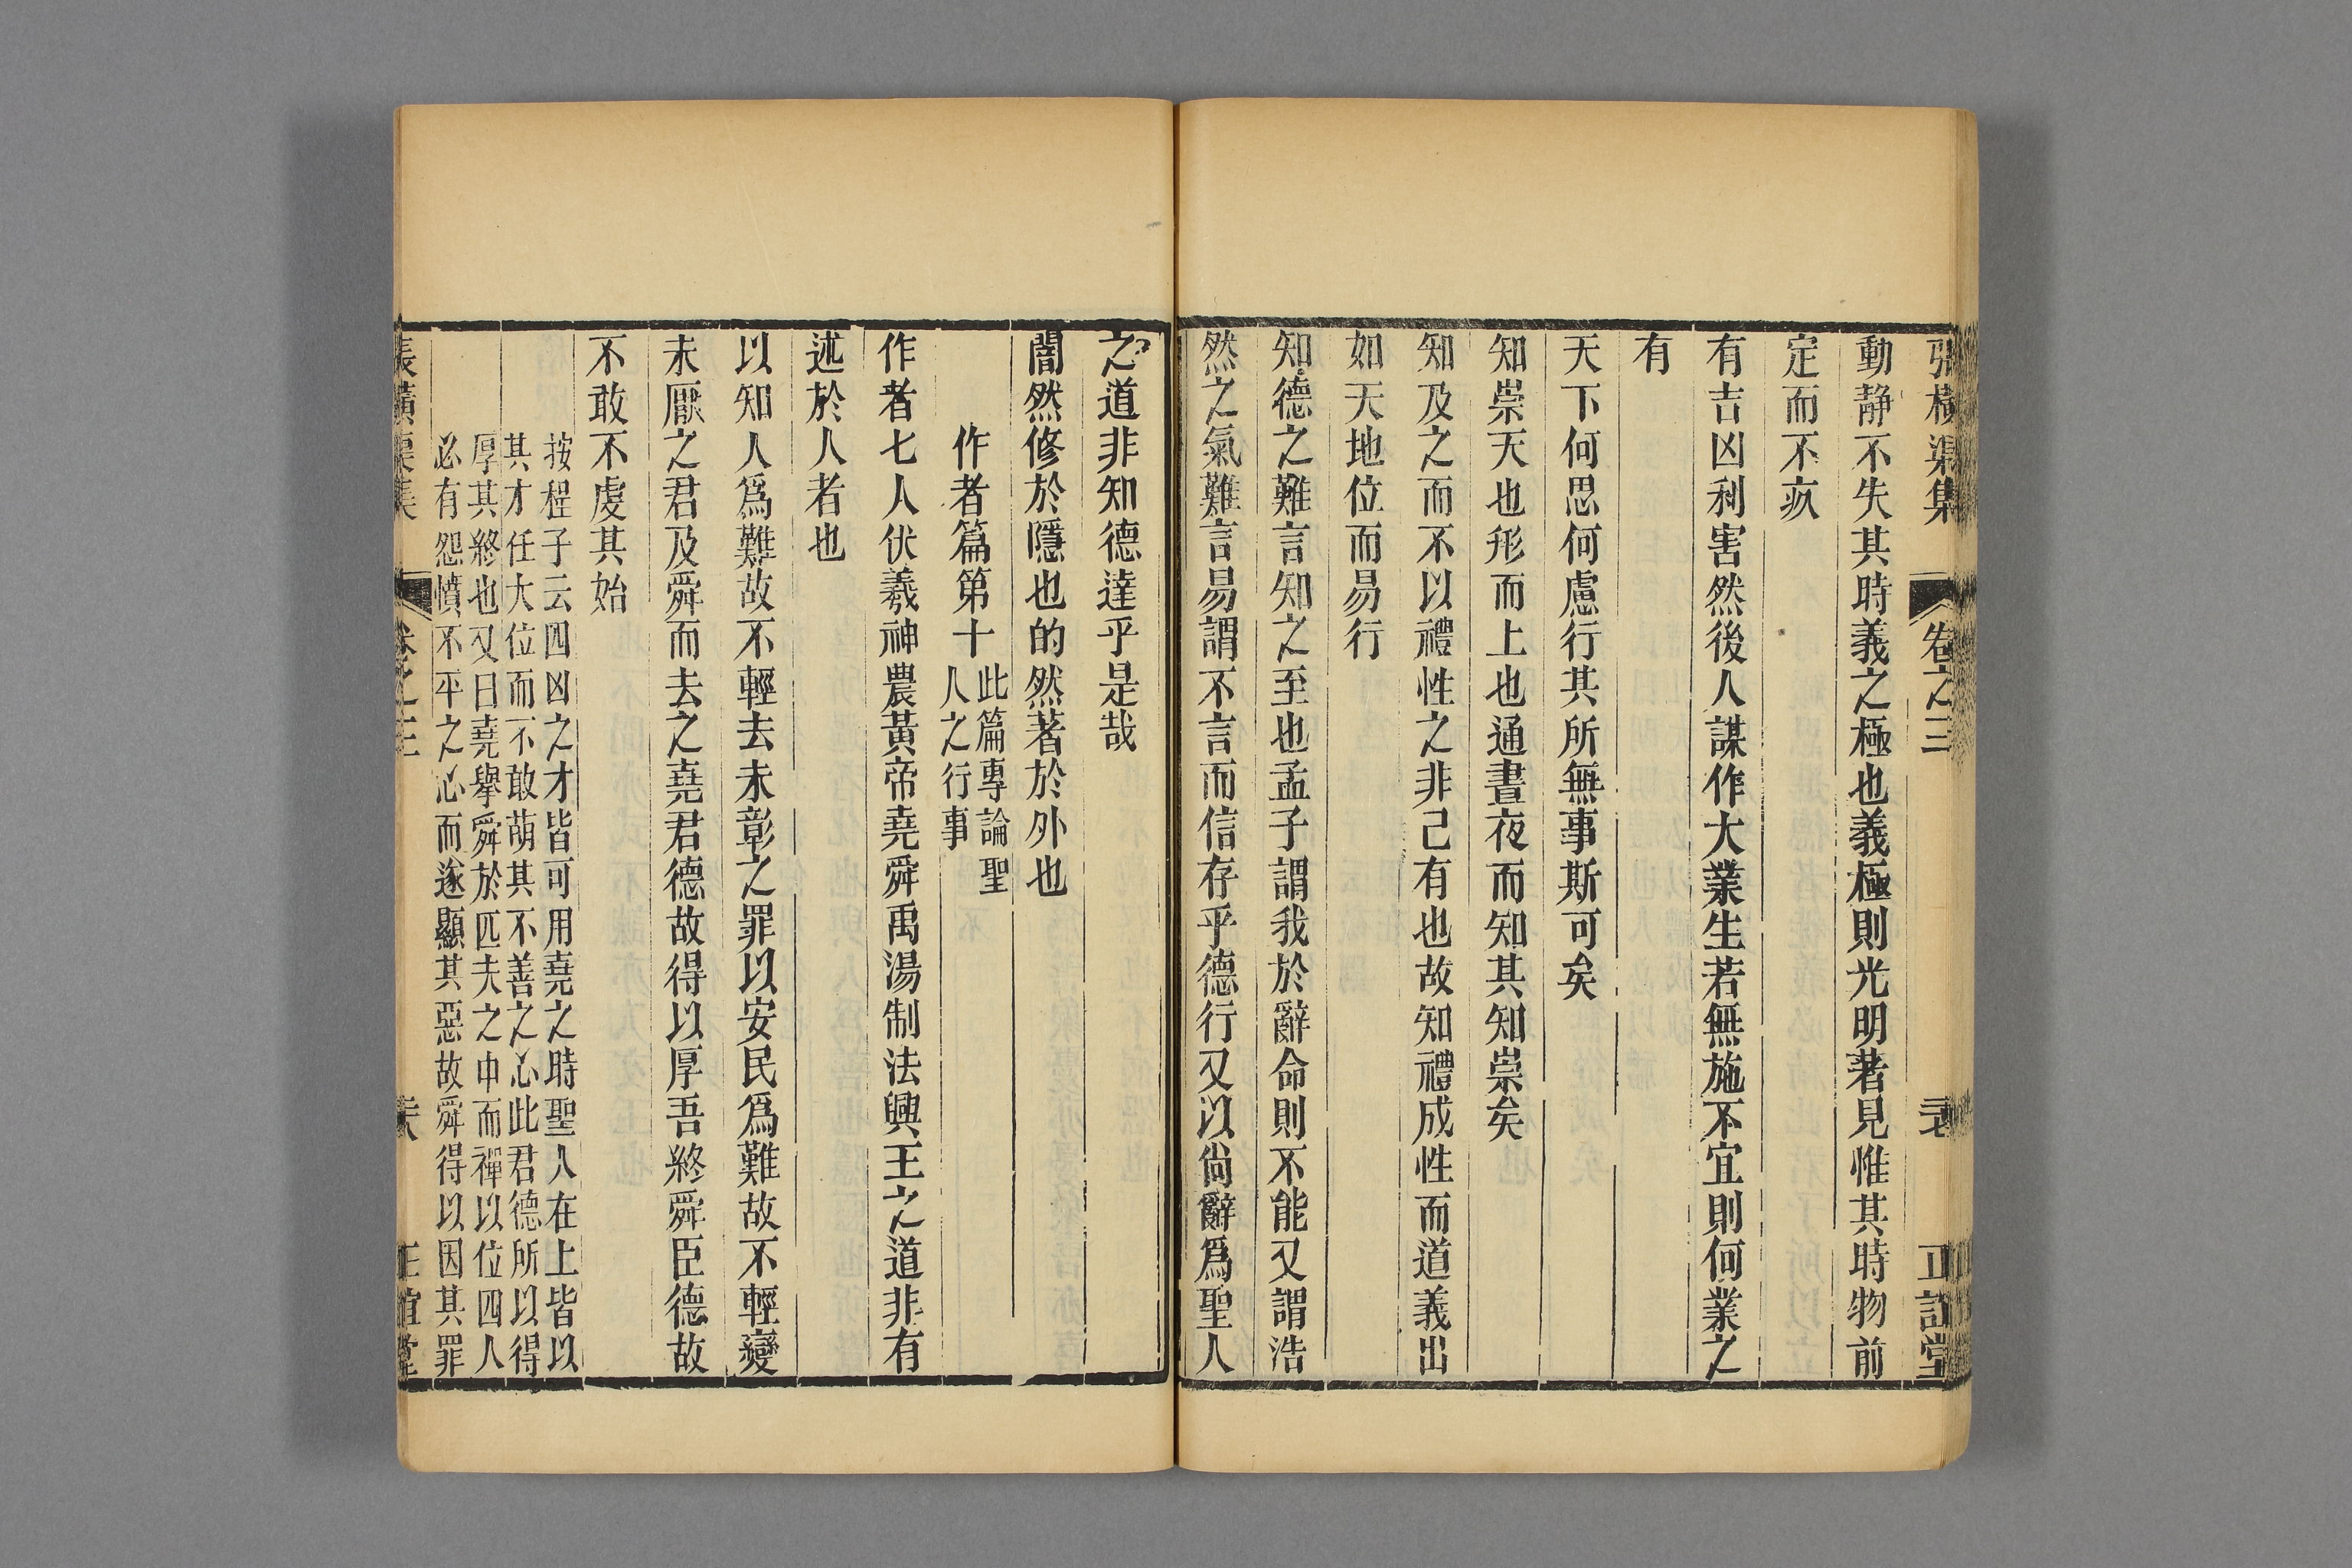 張橫渠集 卷之三 正誼堂
動靜不失其時義之極也義極則光明著見惟其時物前
定而不疚
有吉凶利害然後人謀作大業生若無施不宜則何業之
有
天下何思何慮行其所無事斯可矣
知崇天也形而上也通晝夜而知其知崇矣
知及之而不以禮性之非己有也故知禮成性而道義出
如天地位而易行
知德之難言知之至也孟子謂我於辭命則不能又謂浩
然之氣難言易謂不言而信存乎德行又以尚辭爲聖人
之道非知德達乎是哉
闇然修於隱也的然著於外也
作者篇第十
此篇專論聖
人之行事
作者七人伏羲神農黃帝堯舜禹湯制法興王之道非有
述於人者也
以知人爲難故不輕去未彰之罪以安民爲難故不輕變
未厭之君及舜而去之堯君德故得以厚吾終舜臣德故
不敢不虔其始
按程子云四凶之才皆可用堯之時聖人在上皆以
其才任大位而不敢萌其不善之心此君德所以得
厚其終也又曰堯舉舜於匹夫之中而禪以位四人
必有怨憤不平之心而遂顯其惡故舜得以因其罪
張橫渠集 卷之三 正誼堂